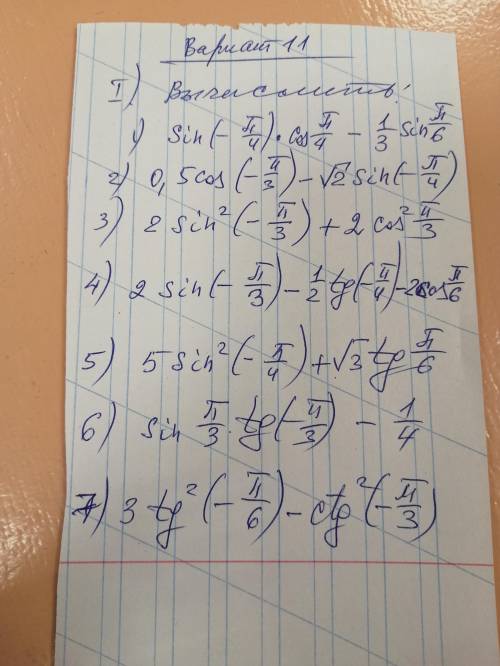 Вариант 11
I) Вычислить:
1) sin(-π/4)·cos π/4 - 1/3 sin π/6
2) 0,5cos(-π/3) - √2 sin(-π/4)
3) 2 sin²(-π/3) + 2 cos² π/3
4) 2 sin(-π/3) - 1/2 tg(-π/4) - 2cos π/6
5) 5 sin²(-π/4) + √3 tg π/6
6) sin π/3 · tg(-π/3) - 1/4
7) 3 tg²(-π/6) - ctg²(-π/3)